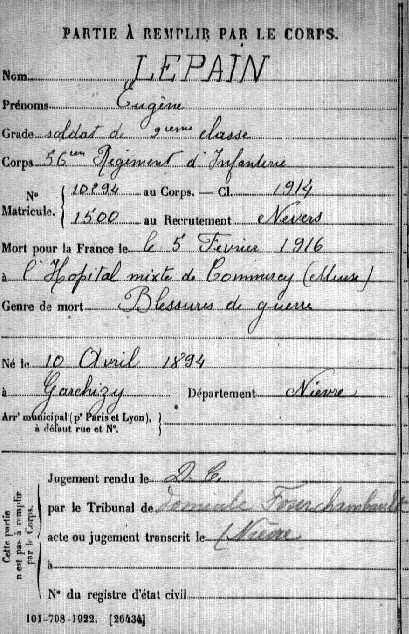 PARTIE À REMPLIR PAR LE CORPS.
Nom LEPAIN
Prénoms Eugène
Grade soldat de 2eme classe
Corps 56eme Régiment d'Infanterie
N° Matricule. { 10894 au Corps. — Cl. 1914
1500 au Recrutement Nevers
Mort pour la France le le 5 Février 1916
à l'Hopital mixte de Commercy (Meuse)
Genre de mort Blessures de guerre
Né le 10 Avril 1894
à Garchizy Département Nièvre
Arrt municipal (pr Paris et Lyon),
à défaut rue et N°.
Cette partie n'est pas à remplir par le Corps.
Jugement rendu le D. C.
par le Tribunal de domicile Fourchambault
acte ou jugement transcrit le (Nièvre
à
N° du registre d'état civil
101-708-1922. [26434]